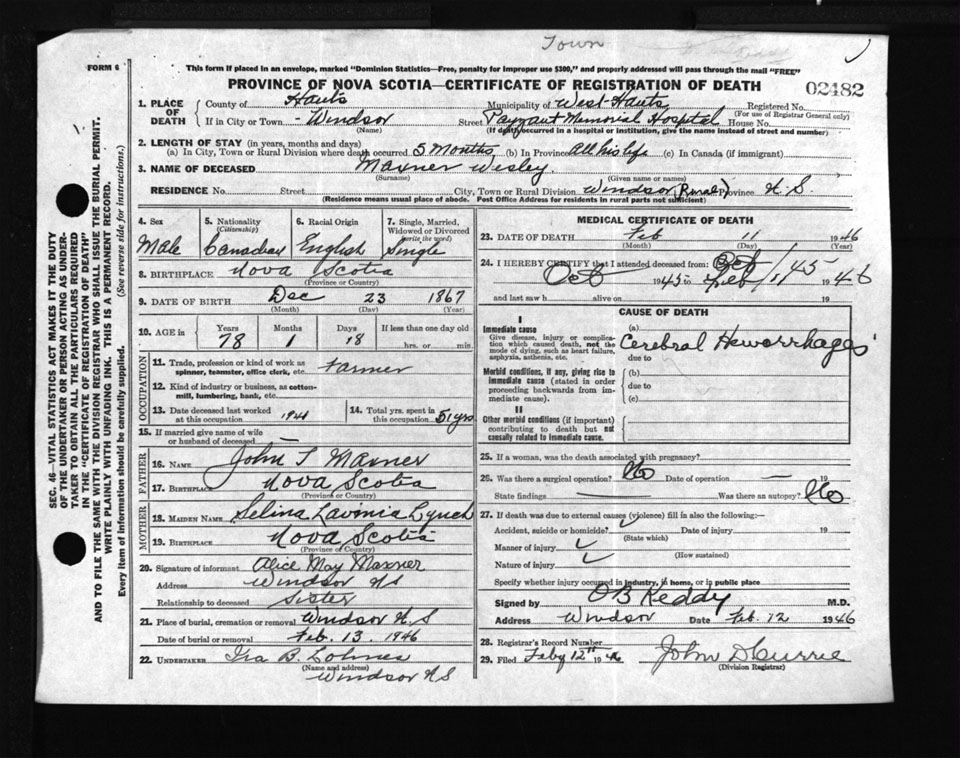 Town
FORM 6
This form if placed in an envelope, marked "Dominion Statistics—Free, penalty for improper use $300," and properly addressed will pass through the mail "FREE"
PROVINCE OF NOVA SCOTIA—CERTIFICATE OF REGISTRATION OF DEATH
02482
SEC. 46—VITAL STATISTICS ACT MAKES IT THE DUTY
OF THE UNDERTAKER OR PERSON ACTING AS UNDER-
TAKER TO OBTAIN ALL THE PARTICULARS REQUIRED
IN THE "CERTIFICATE OF REGISTRATION OF DEATH"
AND TO FILE THE SAME WITH THE DIVISION REGISTRAR WHO SHALL ISSUE THE BURIAL PERMIT.
WRITE PLAINLY WITH UNFADING INK. THIS IS A PERMANENT RECORD.
Every item of information should be carefully supplied. (See reverse side for instructions.)
1. PLACE OF DEATH County of Hants Municipality of West Hants Registered No.
(For use of Registrar General only)
If in City or Town - Windsor Street Payzant Memorial Hospital House No.
(Name) (If death occurred in a hospital or institution, give the name instead of street and number)
2. LENGTH OF STAY (in years, months and days)
(a) In City, Town or Rural Division where death occurred 5 Months (b) In Province All his life (c) In Canada (if immigrant)
3. NAME OF DECEASED Maxner Wesley.
(Surname) (Given name or names)
RESIDENCE No. Street City, Town or Rural Division Windsor (Rural) Province N.S.
(Residence means usual place of abode. Post Office Address for residents in rural parts not sufficient)
4. Sex 5. Nationality (Citizenship) 6. Racial Origin 7. Single, Married, Widowed or Divorced (write the word)
Male Canadian English Single
8. BIRTHPLACE Nova Scotia
(Province or Country)
9. DATE OF BIRTH Dec 23 1867
(Month) (Day) (Year)
10. AGE in Years Months Days If less than one day old
78 1 18 hrs. or min.
OCCUPATION
11. Trade, profession or kind of work as spinner, teamster, office clerk, etc. Farmer
12. Kind of industry or business, as cotton-mill, lumbering, bank, etc.
13. Date deceased last worked at this occupation 1941
14. Total yrs. spent in this occupation 51 yrs
15. If married give name of wife or husband of deceased —
FATHER
16. NAME John T Maxner
17. Birthplace Nova Scotia
(Province or Country)
MOTHER
18. MAIDEN NAME Selina Lavinia Lynch
19. Birthplace Nova Scotia
(Province or Country)
20. Signature of informant Alice May Maxner
Address Windsor NS
Relationship to deceased Sister
21. Place of burial, cremation or removal Windsor N.S
Date of burial or removal Feb. 13. 1946
22. UNDERTAKER Ira B. Lohnes
(Name and address)
Windsor NS
MEDICAL CERTIFICATE OF DEATH
23. DATE OF DEATH Feb 11 1946
(Month) (Day) (Year)
24. I HEREBY CERTIFY that I attended deceased from: Oct 45
Oct 1945 to Feb 11 1946
and last saw h alive on 19
CAUSE OF DEATH
I
Immediate cause
Give disease, injury or complication which caused death, not the mode of dying, such as heart failure, asphyxia, asthenia, etc.
(a) Cerebral Hemorrhages
due to
Morbid conditions, if any, giving rise to immediate cause (stated in order proceeding backwards from immediate cause).
(b)
due to
(c)
II
Other morbid conditions (if important) contributing to death but not causally related to immediate cause.
25. If a woman, was the death associated with pregnancy?
26. Was there a surgical operation? No Date of operation — 19
State findings Was there an autopsy? No
27. If death was due to external causes (violence) fill in also the following:—
Accident, suicide or homicide? Date of injury 19
(State which)
Manner of injury
(How sustained)
Nature of injury
Specify whether injury occurred in industry, in home, or in public place
Signed by O B Keddy M.D.
Address Windsor Date Feb. 12 1946
28. Registrar's Record Number
29. Filed Feby 12th 1946 John D Currie
(Division Registrar)